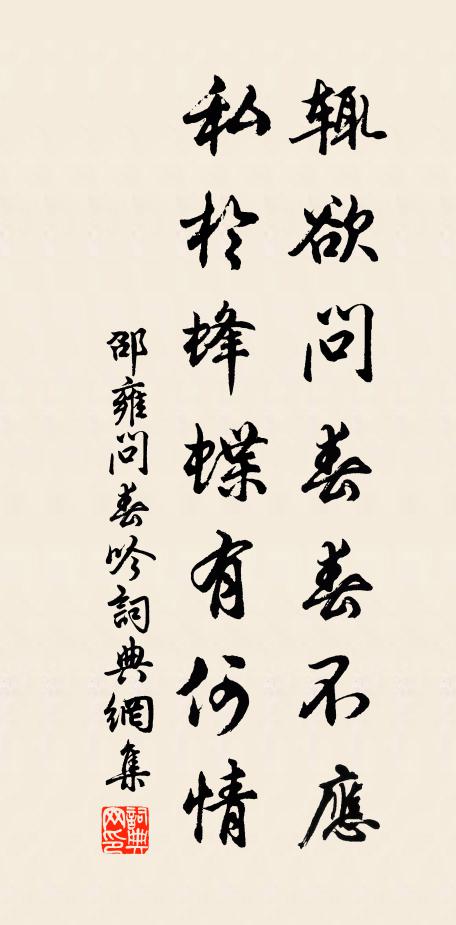 輒欲問春春不應
私於蜂蝶有何情
邵雍問春吟詞典網集
詞典網印